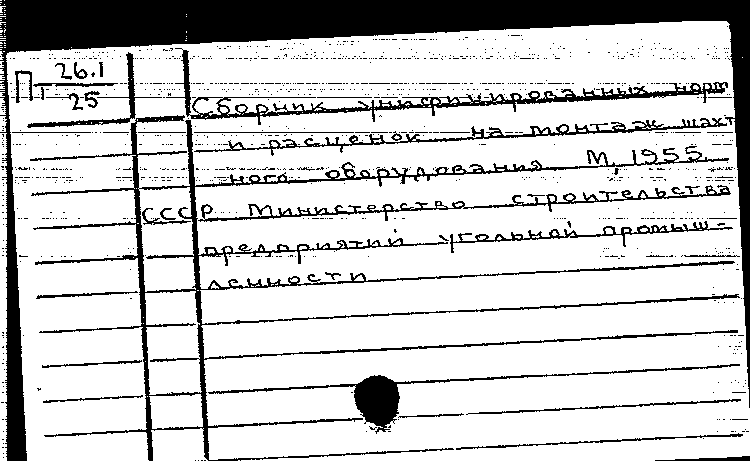 Пт 26.1
25
Сборник унифицированных норм
и расценок на монтаж шахт
ного оборудования М, 1955.
СССР Министерство строительства
предприятий угольной промыш-
ленности